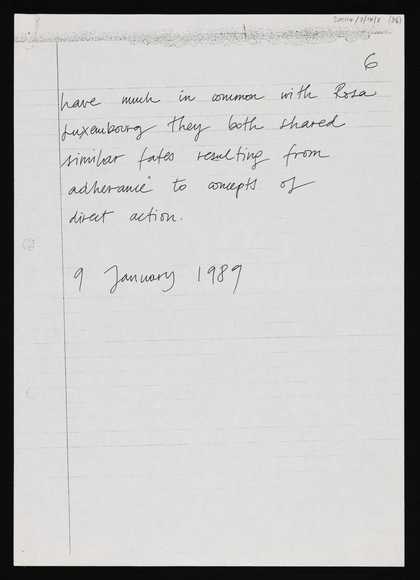 6
have much in common with Rosa
Luxembourg they both shared
similar fates resulting from
adherance to concepts of
direct action.
9 January 1989